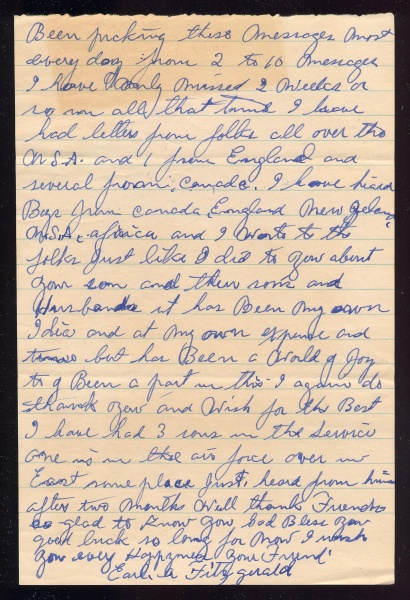 Been picking these Messages most
every day from 2 to 10 Messages
I have only missed 2 Weeks or
so in all that time I have
had letters from folks all over the
U.S.A. and 1 from England and
several from Canada. I have heard
Boys from Canada England New Zeland
U.S.A. africa and I Wrote to the
folks Just like I did to you about
your son and their sons and
Husbands it has Been my own
Idia and at My own expense and
but has Been a World of Joy
to of Been a part in this I again do
thank you and Wish for the Best
I have had 3 sons in the Service
one is in the air force over in
East some place Just heard from him
after two Months Well thanks Friends
so glad to Know you God Bless you
good luck so long for Now I wish
you every Happiness Your Friend
Earl A Fitzgerald